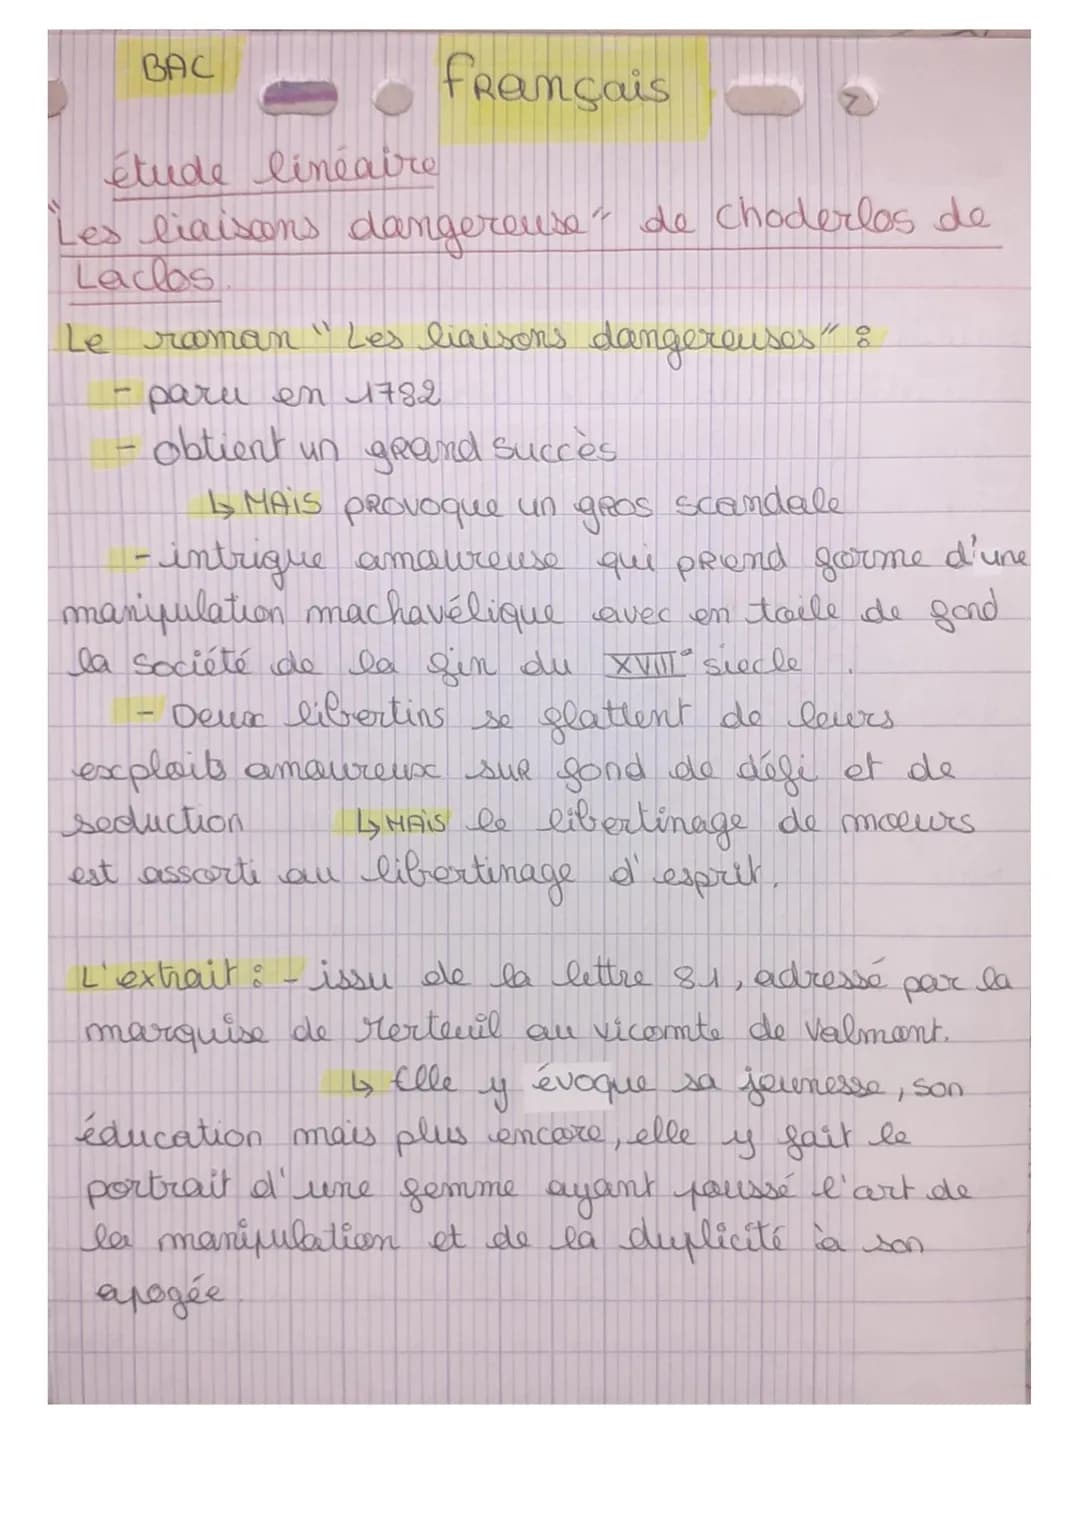 BAC
français
étude linéaire
"Les liaisons dangereuse" de Choderlos de
Laclos.
Le roman "Les liaisons dangereuses" :
- paru en 1782
- obtient un grand succès
↳ MAIS provoque un gros scandale
- intrigue amoureuse qui prend forme d'une
manipulation machavélique avec en toile de fond
la société de la fin du XVIII° siecle.
- Deux libertins se flattent de leurs
exploits amoureux sur fond de défi et de
seduction ↳ MAIS le libertinage de moeurs
est assorti au libertinage d'esprit.
L'extrait : - issu de la lettre 81, adressé par la
marquise de Merteuil au vicomte de Valmont.
↳ Elle y évoque sa jeunesse, son
éducation mais plus encore, elle y fait le
portrait d'une femme ayant poussé l'art de
la manipulation et de la duplicité à son
apogée.